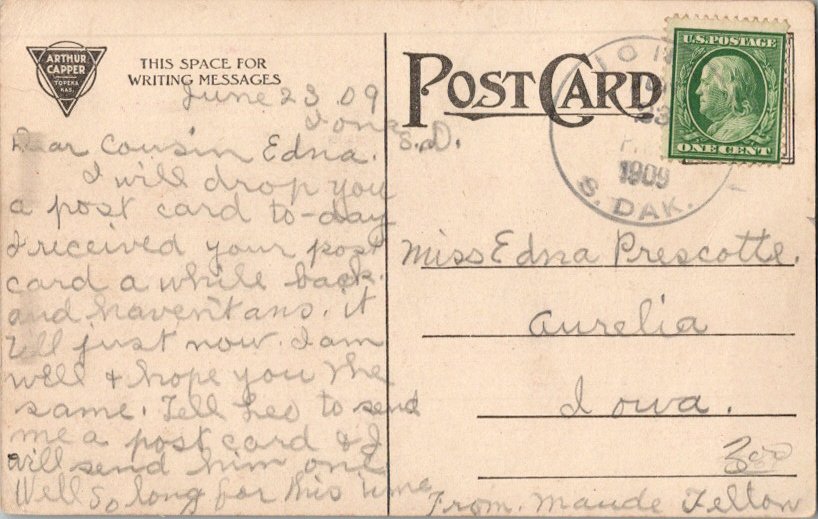 ARTHUR
CAPPER
TOPEKA
KAS.
THIS SPACE FOR
WRITING MESSAGES
June 23 09
Iona
S.D.
Dear Cousin Edna.
I will drop you
a post card to-day
I received your post
card a while back.
and haven't ans. it
till just now. I am
well & hope you the
same. Tell Leo to send
me a post card & I
will send him one
Well so long for this time
From. Maude Felton
POST CARD
U.S. POSTAGE
ONE CENT
IO
23
P.M.
1909
S. DAK.
Miss Edna Prescotte.
Aurelia
Iowa.
300